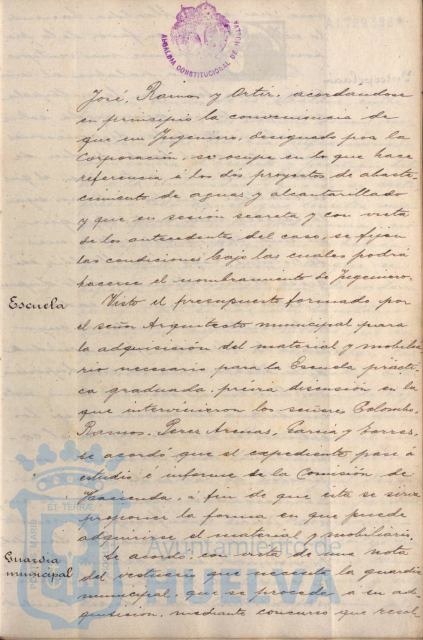 ALCALDIA CONSTITUCIONAL DE HUELVA
José, Ramos y Ortiz, acordandose
en principio la conveniencia de
que un Ingeniero, designado por la
Corporación, se ocupe en lo que hace
referencia á los dos proyectos de abaste-
cimiento de aguas y alcantarillado
y que en sesión secreta y con vista
de los antecedentes del caso, se fijen
las condiciones bajo las cuales podrá
hacerse el nombramiento de Ingeniero.
Escuela
Visto el presupuesto formado por
el señor Arquitecto municipal para
la adquisición del material y mobilia-
rio necesario para la Escuela prácti-
ca graduada, previa discusión en la
que intervinieron los señores Colombo,
Ramos, Perez Arenas, Garcia y Torres,
se acordó que el expediente pase á
estudio é informe de la Comisión de
Hacienda, á fin de que esta se sirva
proponer la forma en que puede
adquirirse el material y mobiliario.
Guardia
municipal
Se acordó, con vista de una nota
del vestuario que necesita la guardia
municipal, que se proceda á su ad-
quisición, mediante concurso que resol-
Ayuntamiento de
HUELVA